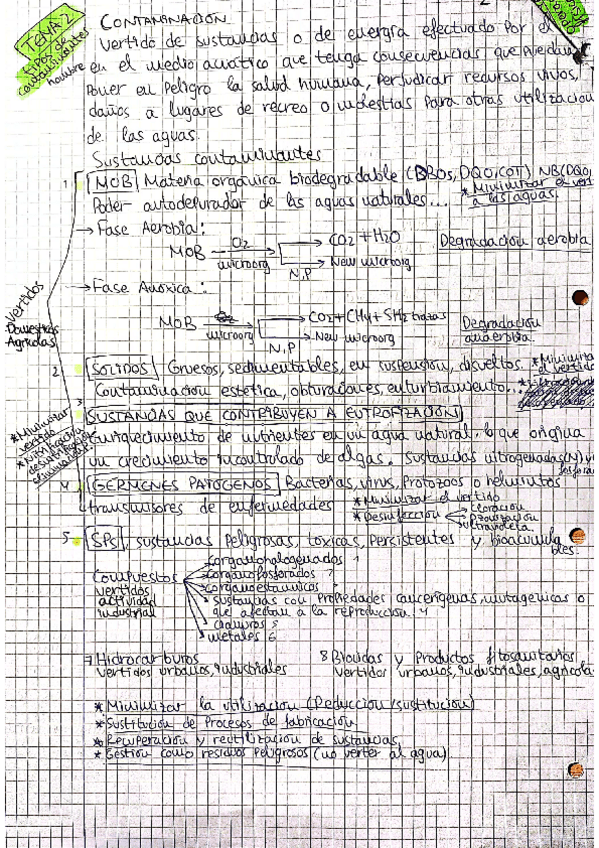 TEMA 2
tipos de contaminantes
CONTAMINACION
Vertido de sustancias o de energía efectuado por el
hombre en el medio acuático que tenga consecuencias que puedan
poner en peligro la salud humana, perjudicar recursos vivos,
daños a lugares de recreo o molestias para otras utilizacion
de las aguas.
Sustancias contaminantes
1 MOB Materia orgánica biodegradable (DBO5, DQO, COT) NB(DQO,
Poder autodepurador de las aguas naturales... * Minimizar el vert
a las aguas.
→ Fase Aerobia:
MOB O2 microorg → CO2 + H2O
N,P → New microorg
Degradación aerobia
→ Fase Anóxica:
MOB O2 microorg → CO2 + CH4 + SH2 trazas
N,P → New microorg
Degradación anaerobia.
Vertidos
Domesticos
Agricolas
2 SOLIDOS Gruesos, sedimentables, en suspensión, disueltos. * Minimiza
el vertido
Contaminación estética, obturadores, enturbiamiento...
3 SUSTANCIAS QUE CONTRIBUYEN A EUTROFIZACION
* Minimizar vertido
Enriquecimiento de nutrientes en un agua natural, lo que origina
un crecimiento incontrolado de algas. Sustancias nitrogenadas (N) y
fosfora
4 GERMENES PATOGENOS Bacterias, virus, protozoos o helmintos
transmisores de enfermedades * Minimizar el vertido
* Desinfección cloración
ozonización
ultravioleta
5 SPs, sustancias peligrosas, tóxicas, persistentes y bioacumula
bles.
Compuestos
vertidos
actividad
industrial
corganohalogenados 1
corganofosforados 2
corganoestannicos 3
sustancias con propiedades cancerígenas, mutagenicas o
que afectan a la reproducción. 4
cianuros 5
metales 6
7 Hidrocarburos
Vertidos urbanos, industriales
8 Biocidas y Productos fitosanitarios
Vertidos urbanos, industriales, agricola
* Minimizar la utilización (Reducción/sustitución)
* Sustitución de Procesos de fabricación.
* Recuperación y reutilización de sustancias
* Gestión como residuos peligrosos (no verter al agua).